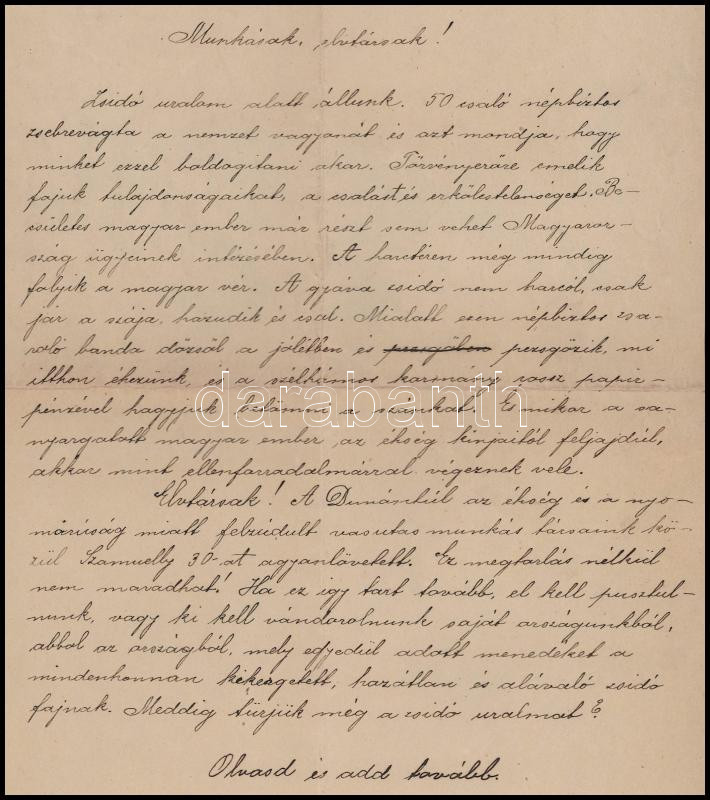 Munkások, elvtársak!
Zsidó uralom alatt állunk. 50 csaló népbiztos
zsebrevágta a nemzet vagyonát és azt mondja, hogy
minket ezzel boldogitani akar. Törvényerőre emelik
fajuk tulajdonságaikat, a csalást és erkölcstelenséget. Be-
csületes magyar ember már részt sem vehet Magyaror-
szág ügyeinek intézésében. A harctéren még mindig
folyik a magyar vér. A gyáva zsidó nem harcol, csak
jár a szája, hazudik és csal. Mialatt ezen népbiztos zsa-
roló banda dőzsöl a jólétben és pezsgőben pezsgőzik, mi
itthon éhezünk, és a szélhámos kormány rossz papir-
pénzével hagyjuk betömni a szánkat. És mikor a sa-
nyargatott magyar ember az éhség kinjaitól feljajdúl,
akkor mint ellenforradalmárral végeznek vele.
Elvtársak! A Dunántúl az éhség és a nyo-
morúság miatt felzúdult vasutas munkás társaink kö-
zül Szamuelly 30-at agyonlövetett. Ez megtorlás nélkül
nem maradhat! Ha ez igy tart tovább, el kell pusztul-
nunk, vagy ki kell vándorolnunk saját országunkból,
abból az országból, mely egyedül adott menedéket a
mindenhonnan kikergetett, hazátlan és alávaló zsidó
fajnak. Meddig türjük még a zsidó uralmat?
Olvasd és add tovább.
darabanth